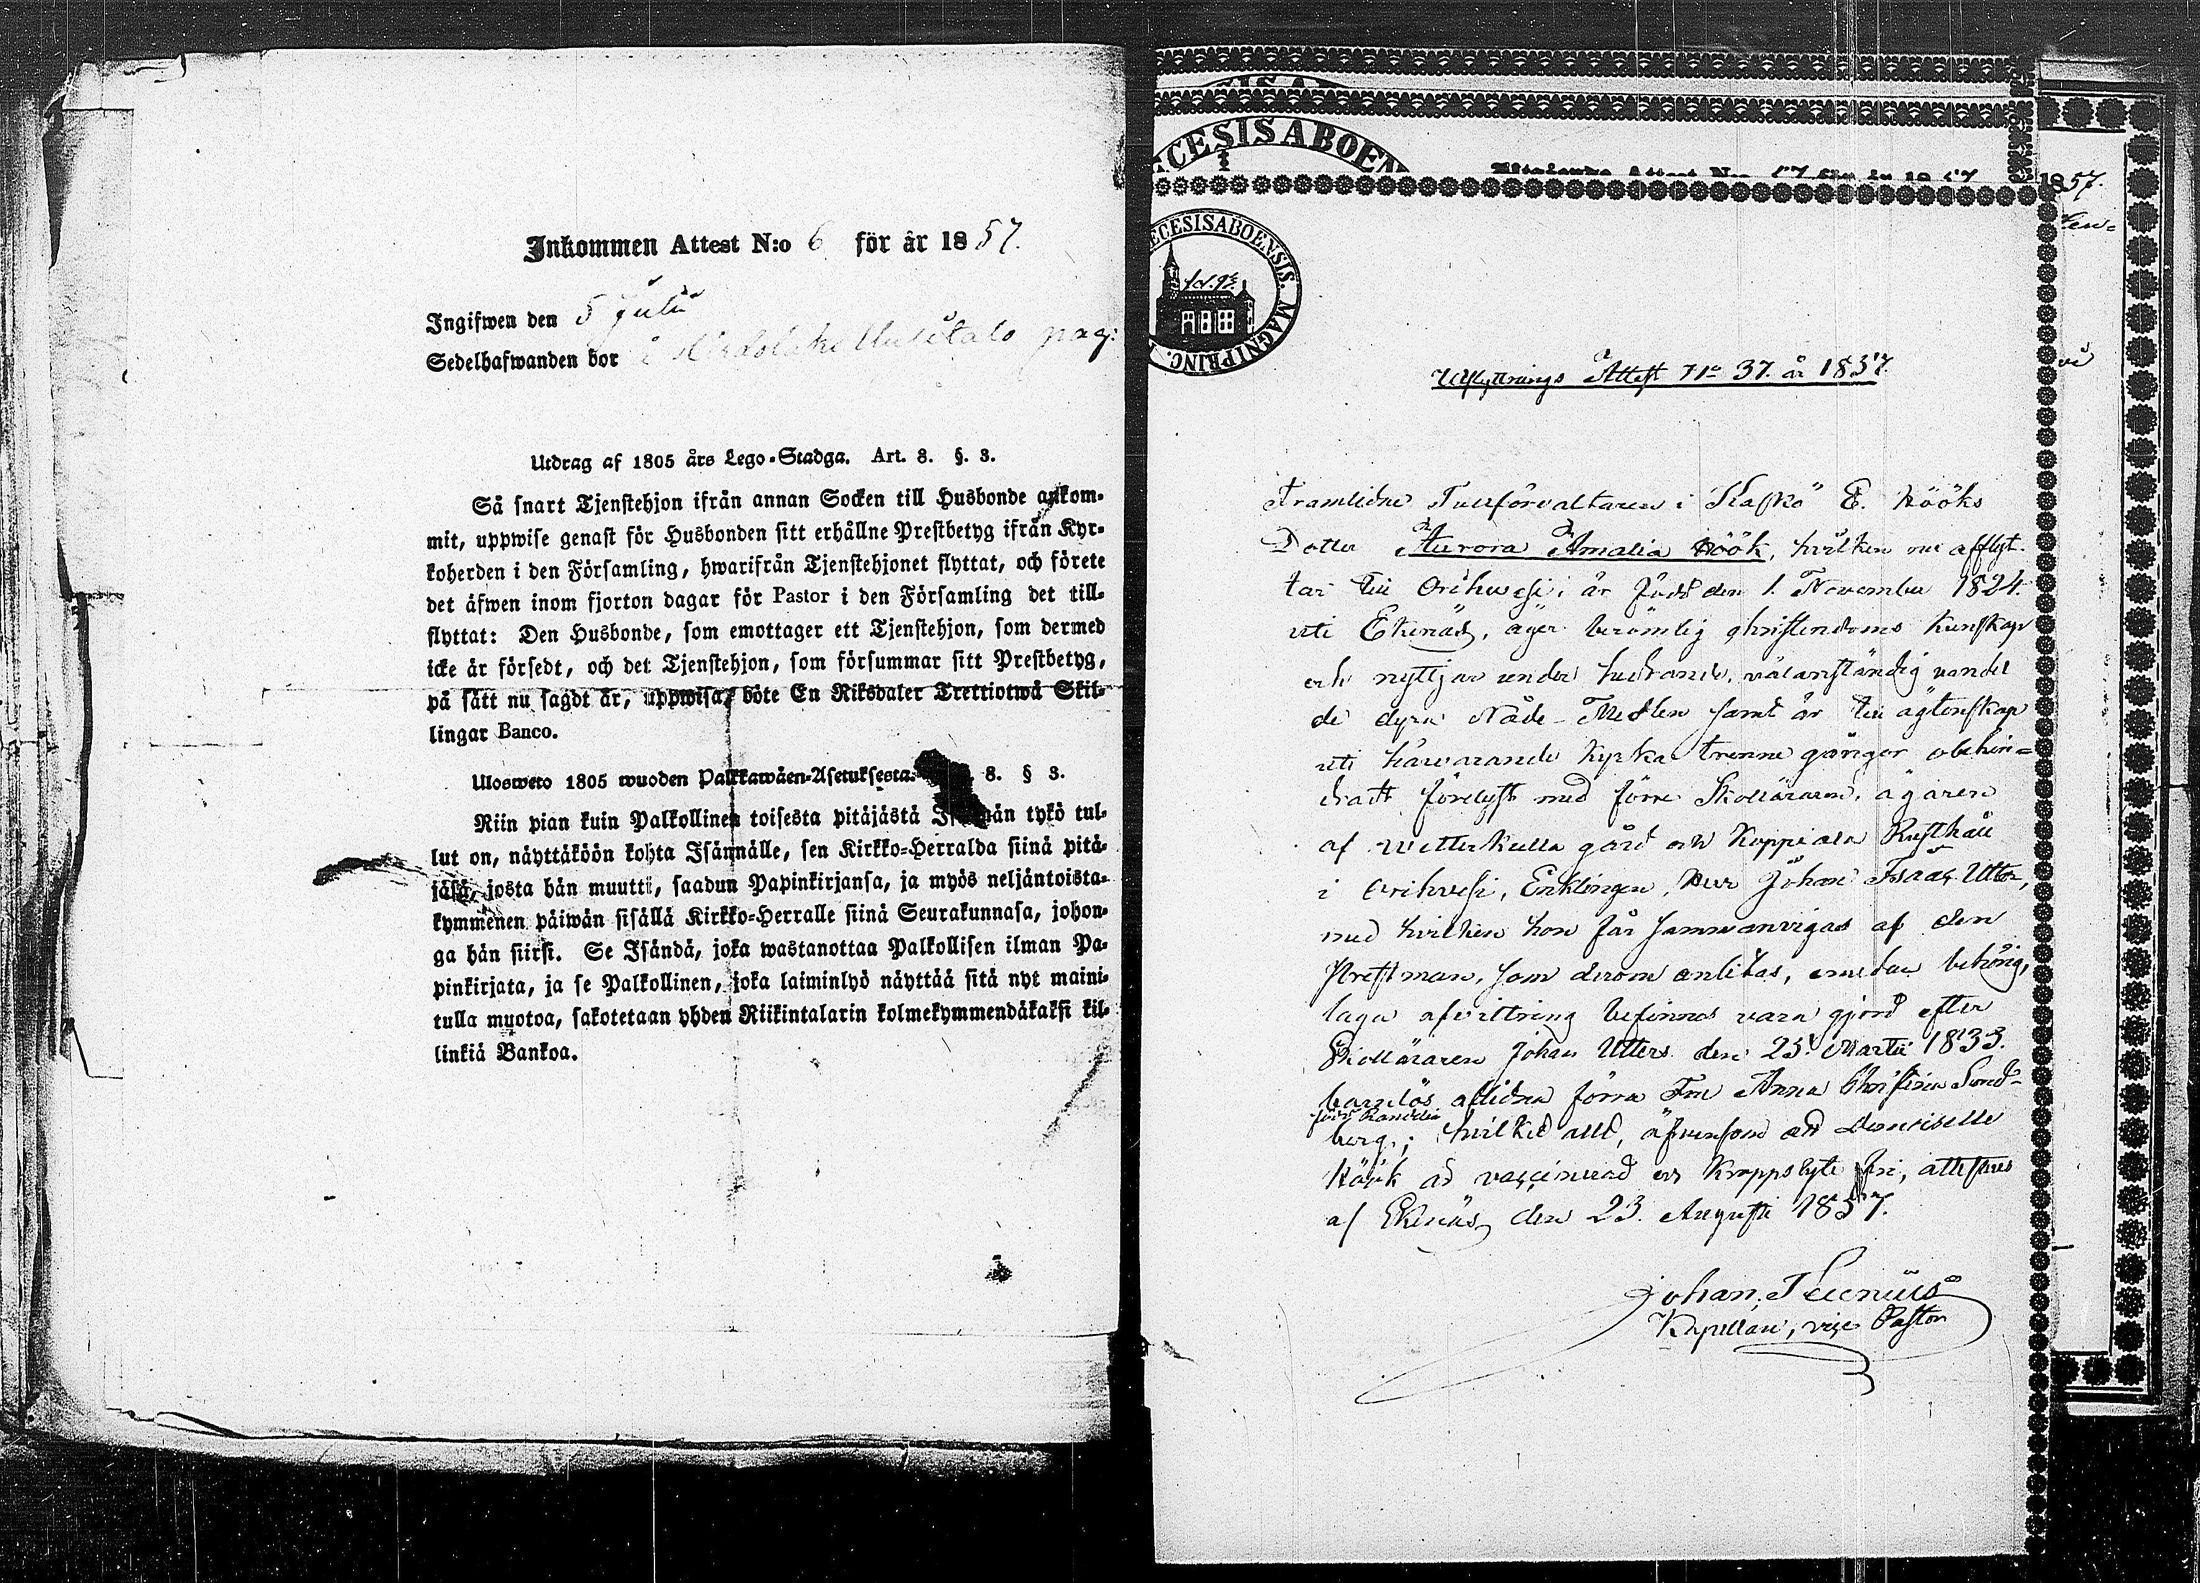 Inkommen Attest N:o 6 för år 1857.
Ingifwen den 5 Julii
Sedelhafwanden bor i pag:
Utdrag af 1805 års Lego-Stadga. Art. 8. §. 3.
Så snart Tjenstehjon ifrån annan Socken till Husbonde ankom-
mit, uppwise genast för Husbonden sitt erhållne Prestbetyg ifrån Kyr-
koherden i den Församling, hwarifrån Tjenstehjonet flyttat, och förete
det äfwen inom fjorton dagar för Pastor i den Församling det till-
flyttat: Den Husbonde, som emottager ett Tjenstehjon, som dermed
icke är försedt, och det Tjenstehjon, som försummar sitt Prestbetyg,
på sätt nu sagdt är, uppwisa, böte En Riksdaler Trettiotwå Skil-
lingar Banco.
Ulosweto 1805 wuoden Palkkawäen-Asetuksesta. 8. § 3.
Niin pian kuin Palkollinen toisesta pitäjästä Isännän tykö tul-
lut on, näyttäköön kohta Isännälle, sen Kirkko-Herralda siinä pitä-
jäsä, josta hän muutti, saadun Papinkirjansa, ja myös neljäntoista-
kymmenen päiwän sisällä Kirkko-Herralle siinä Seurakunnasa, johon-
ga hän siirsi. Se Isändä, joka wastanottaa Palkollisen ilman Pa-
pinkirjata, ja se Palkollinen, joka laiminlyö näyttää sitä nyt maini-
tulla muotoa, sakotetaan yhden Riikintalarin kolmekymmendäkaksi kil-
linkiä Bankoa.
ECESIS ABOEN
Utgående Attest N:o 57 för år 1857
1857.
ECESIS ABOENSIS. MAGNI PRINC.
Utflyttnings Attest No 37. år 1857.
Framlidne Tullförvaltaren i Kaskö E. Hööks
Dotter Aurora Amalia Höök, hvilken nu afflyt-
tar till Orihvesi, är född den 1. November 1824
uti Ekenäs, äger berömlig christendoms kunskap
och nyttjar under hedrande, välanständig vandel
de dyra Nåde-Medlen samt är till ägtenskap
uti härvarande kyrka trenne gånger obehin-
dradt förelyst med förre Skolläraren, ägaren
af Wetterkulla gård och Koppiala Rusthåll
i Orihvesi, Enklingen, Herr Johan Isaac Utter,
med hvilken hon får sammanvigas af den
Prestman, som derom anlitas, emedan behörig,
laga afvittring befinnes vara gjord efter
Skolläraren Johan Utters den 25. Martii 1833.
barnlös aflidna förra Fru Anna Christina Sund-
berg; hvilket allt, äfvensom att Demoiselle
Höök är vaccinerad och kroppslyte fri, attesteras
af Ekenäs den 23. Augusti 1857.
Johan
Kapellan, vice Pastor